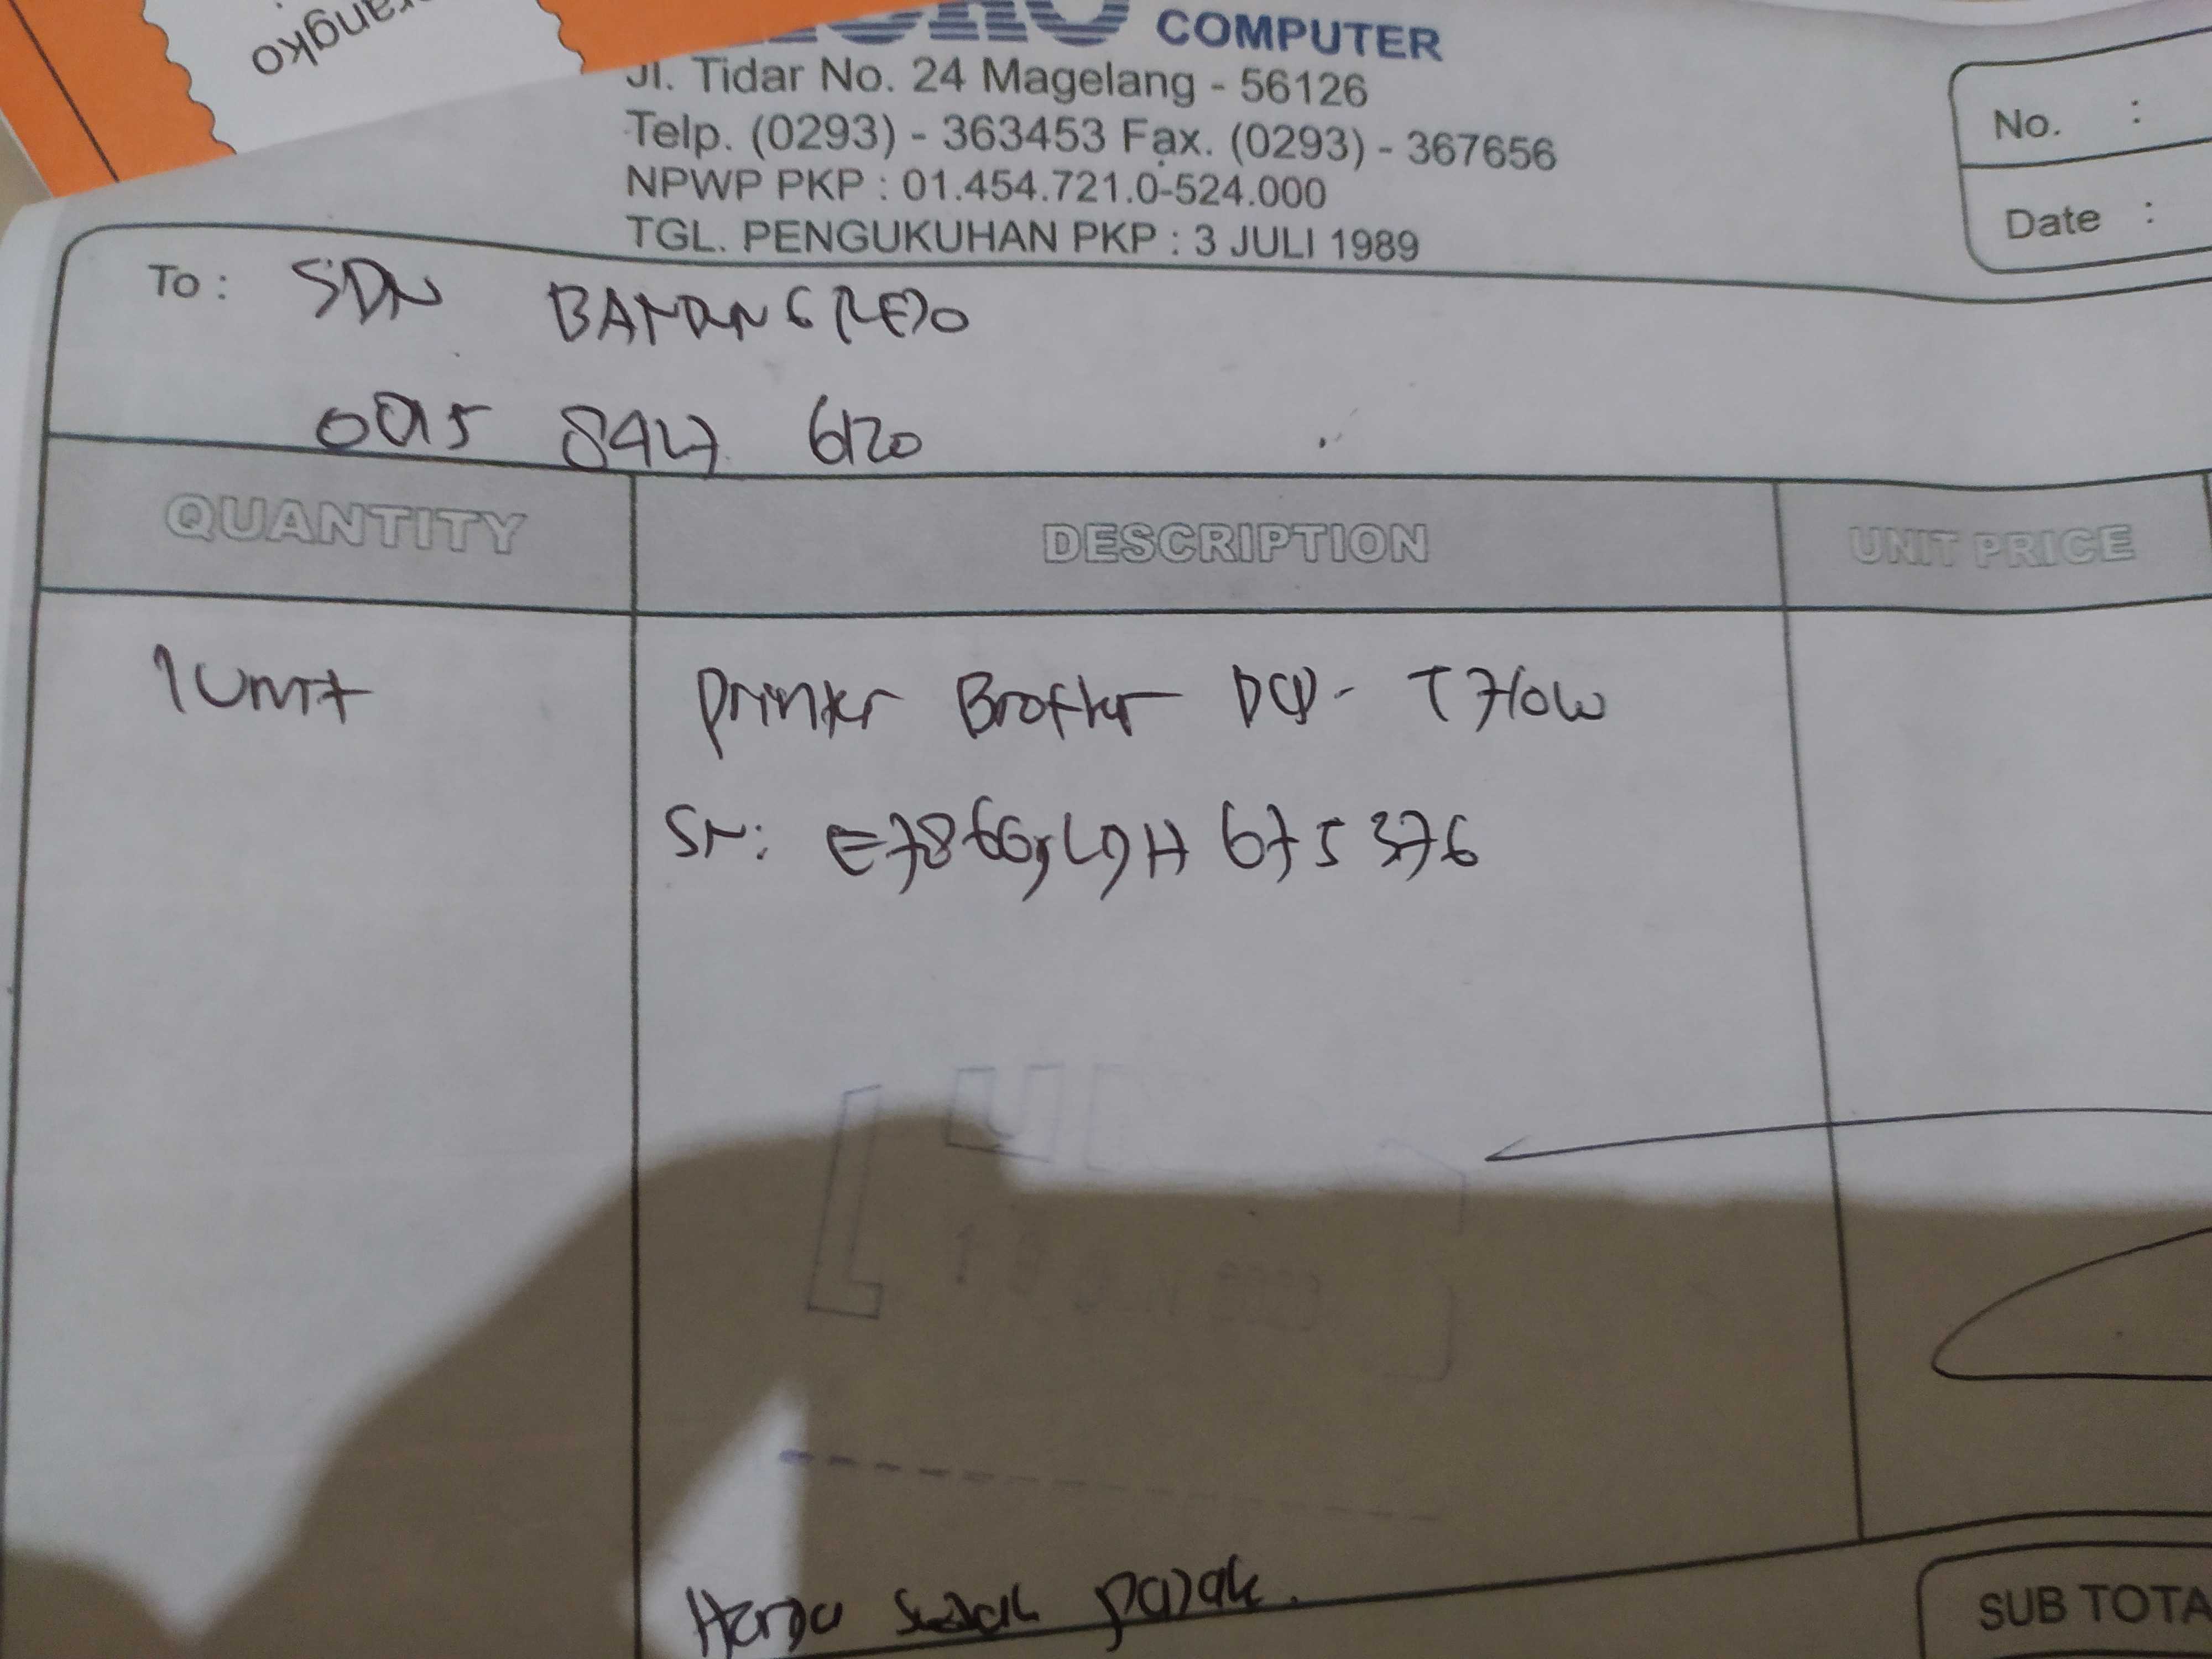 rangko
COMPUTER
Jl. Tidar No. 24 Magelang - 56126
Telp. (0293) - 363453 Fax. (0293) - 367656
NPWP PKP : 01.454.721.0-524.000
TGL. PENGUKUHAN PKP : 3 JULI 1989
No. :
Date :
To : SDN
8427 6120
QUANTITY DESCRIPTION UNIT PRICE
1 Unit Printer Brother DCP - T710W
SN: 675376
Harga sudah pajak.
SUB TOTA